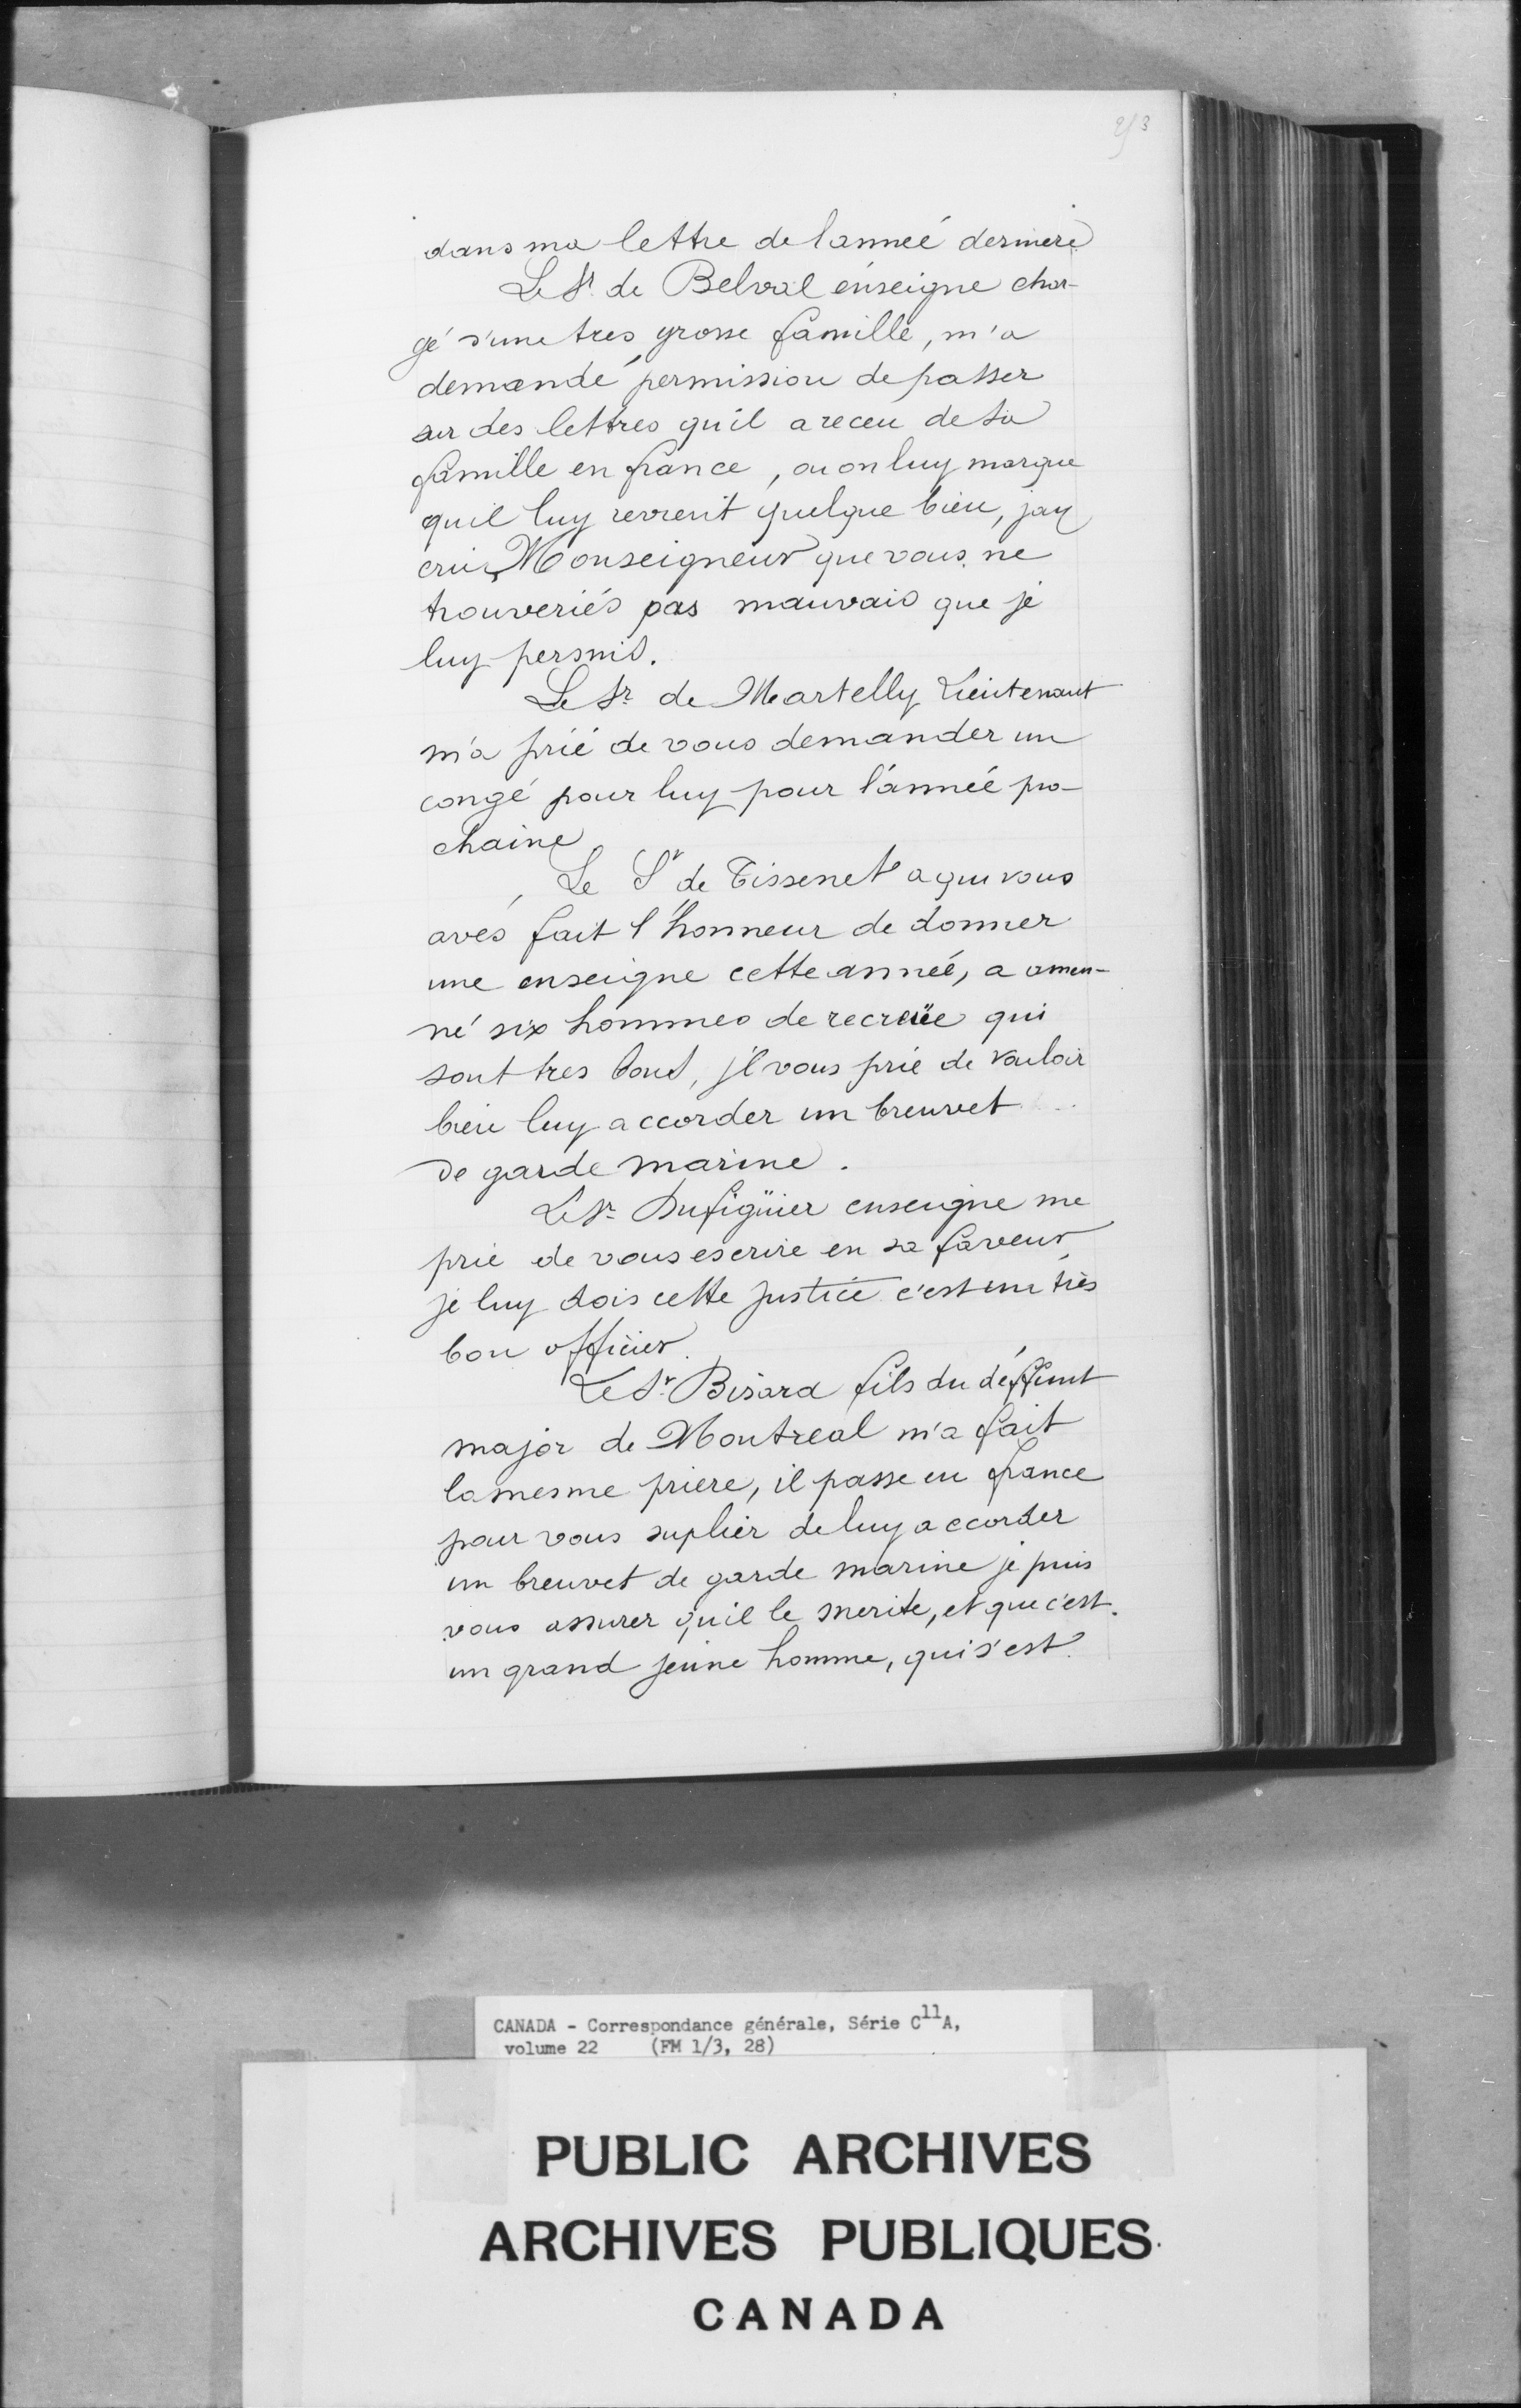 dans ma lettre de l'anneé derniere
Le Sr. de Belval enseigne char-
gé d'une tres grosse famille, m'a
demandé permission de passer
sur des lettres qu'il a receu de sa
famille en france, ou on luy marque
quil luy revient quelque bien, jay
cru, Monseigneur que vous ne
trouveriés pas mauvais que je
luy permis.
Le Sr. de Martelly Lieutenant
m'a prié de vous demander un
congé pour luy pour l'année pro-
chaine
Le Sr de Tissenet a qui vous
avés fait l'honneur de donner
une enseigne cette année, a amen-
né six hommes de recreüe qui
sont tres bons, jl vous prie de vouloir
bien luy accorder un breuvet
de garde marine.
Le Sr. Dufigüier enseigne me
prie de vous escrire en sa faveur
je luy dois cette justice c'est un très
bon officier.
Le Sr. Bisard fils du déffunt
major de Montreal m'a fait
la mesme priere, il passe en france
pour vous suplier de luy accorder
un breuvet de garde marine je puis
vous assurer qu'il le merite, et que c'est
un grand jeune homme, qui s'est
CANADA - Correspondance générale, Série C11A,
volume 22 (FM 1/3, 28)
PUBLIC ARCHIVES
ARCHIVES PUBLIQUES
CANADA